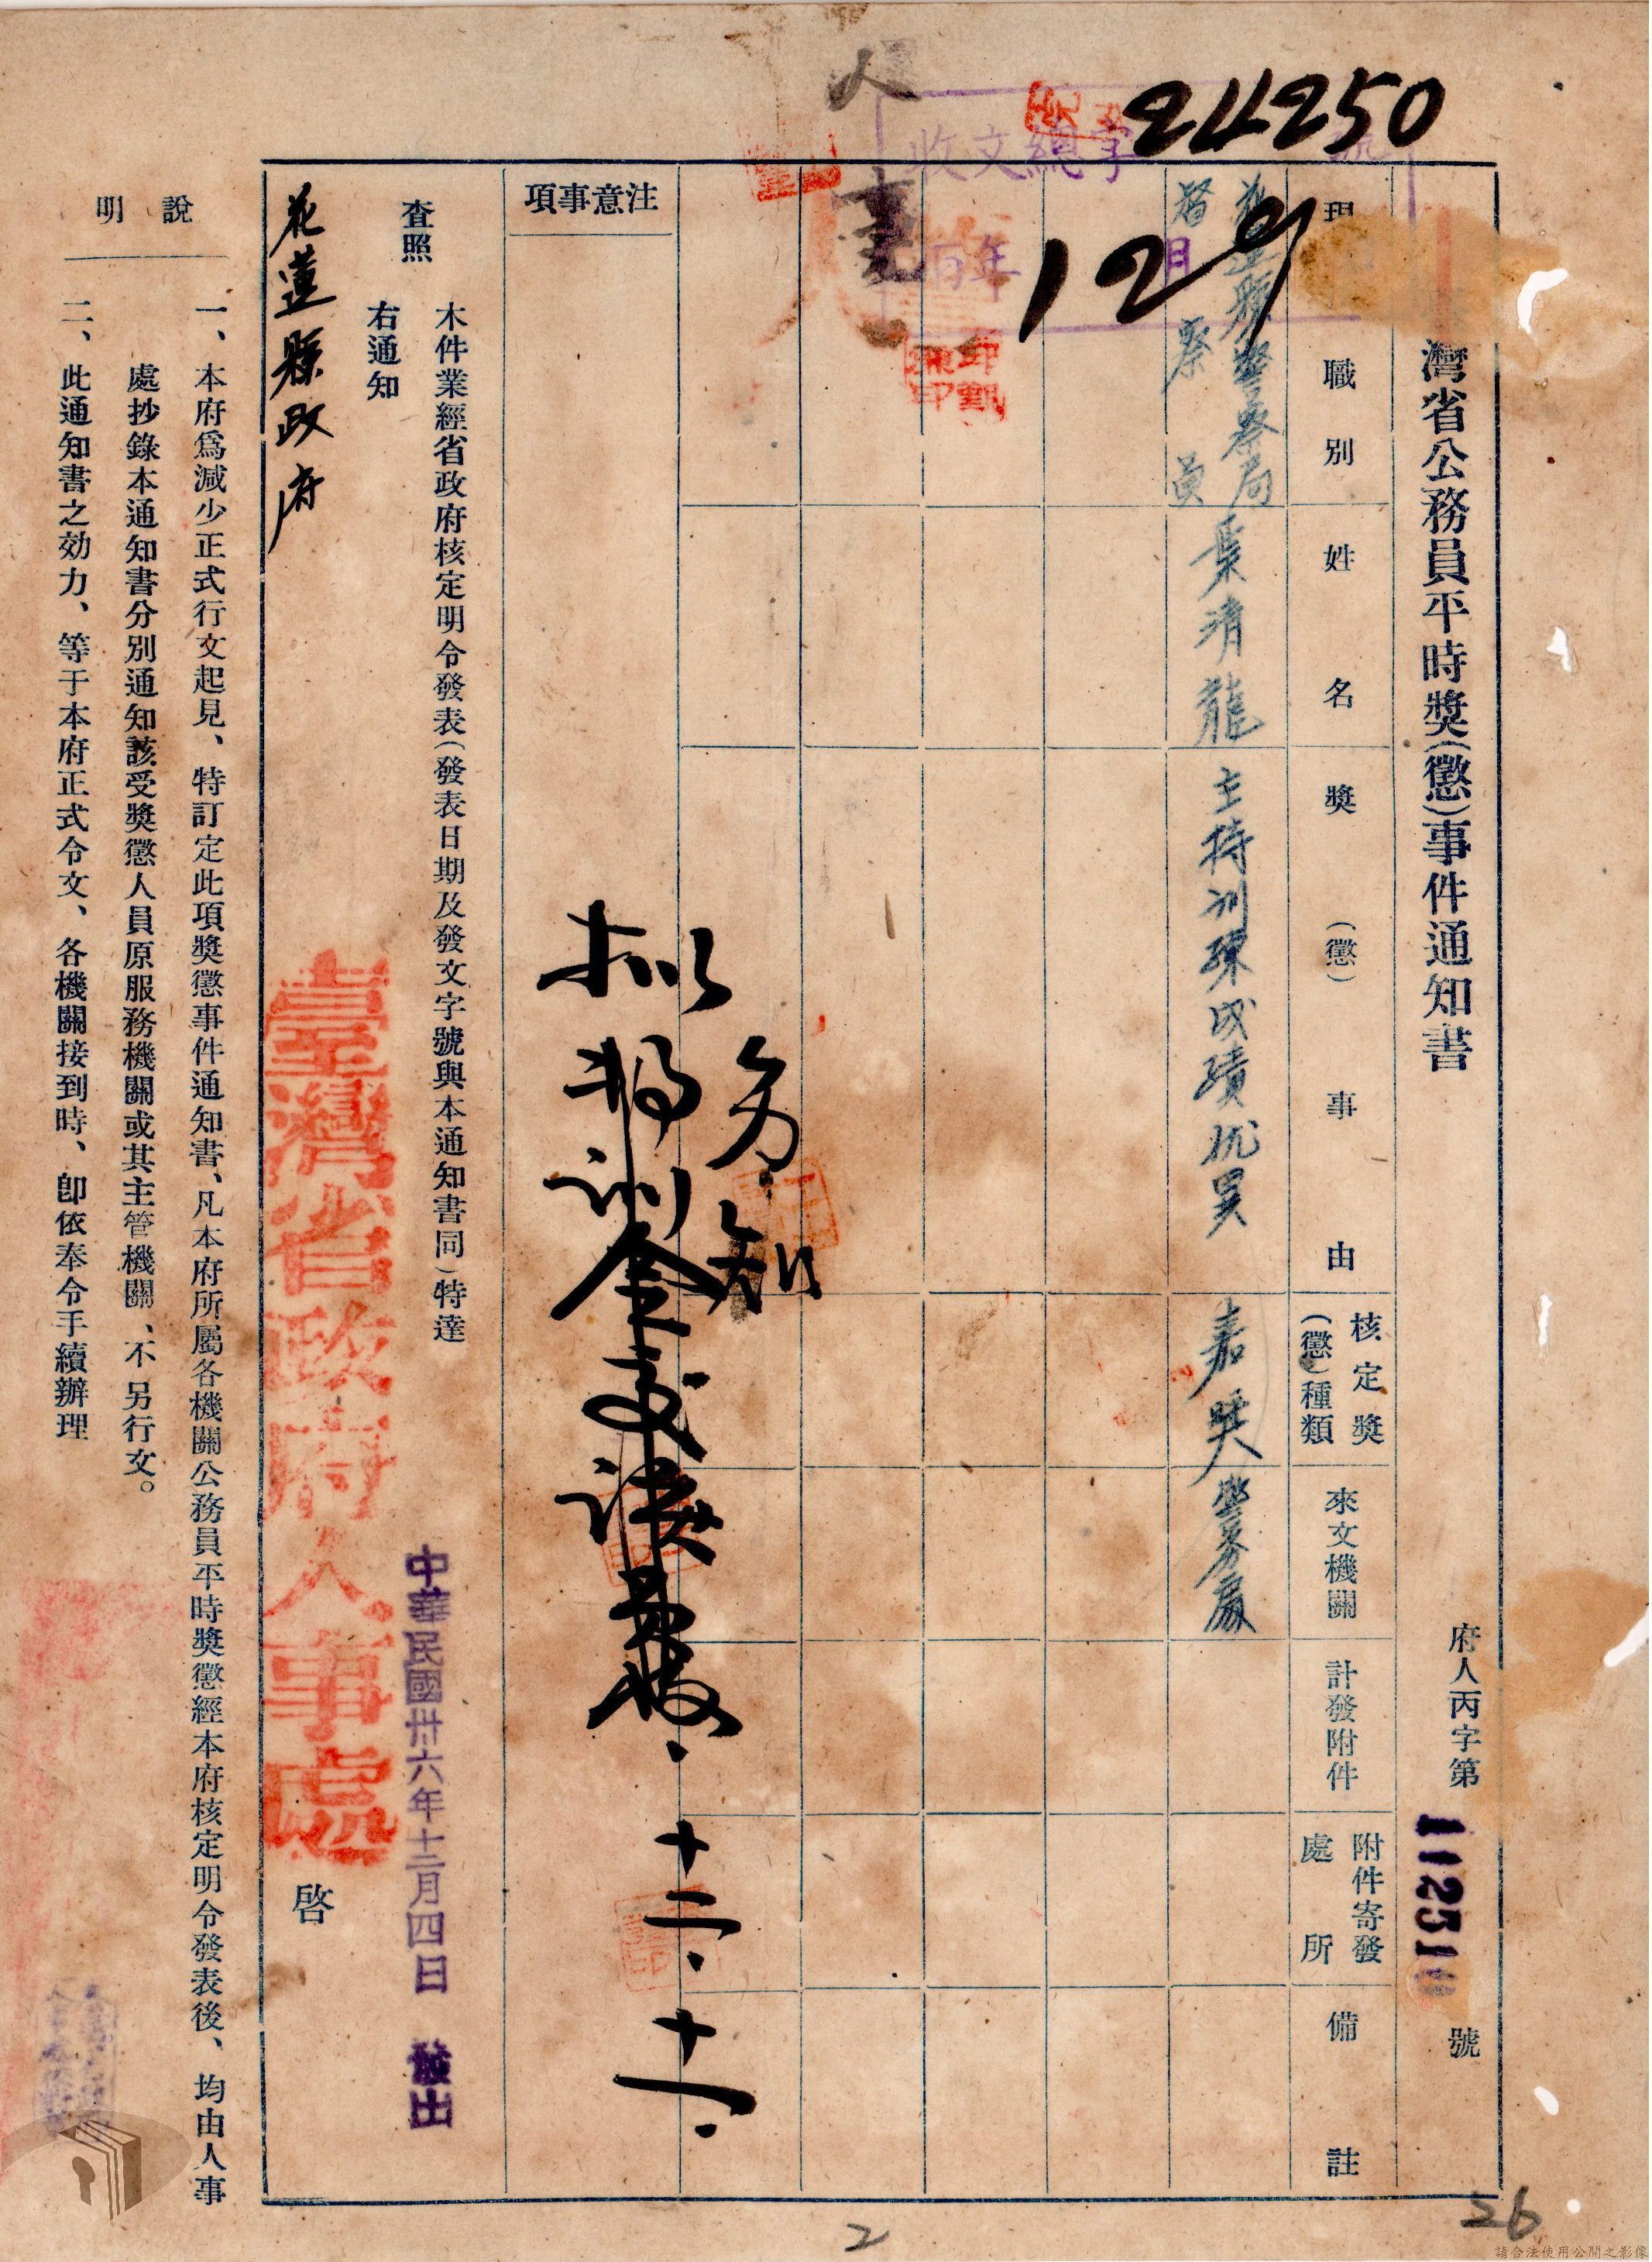 24250
人
收文總字
號
年
月
12 9
灣省公務員平時獎(懲)事件通知書
府人丙字第
11251
號
職別
姓名
獎(懲)事由
核定獎(懲)種類
來文機關
計發附件
附件寄發處所
備註
花蓮縣警察局
督察員
葉清龍
主持訓練成績優異
嘉獎
警務處
注意事項
台知
十二、十一、
本件業經省政府核定明令發表(發表日期及發文字號與本通知書同)特達
查照
右通知
花蓮縣政府
臺灣省政府人事處
啓
中華民國卅六年十二月四日 發出
說明
一、本府爲減少正式行文起見、特訂定此項獎懲事件通知書、凡本府所屬各機關公務員平時獎懲經本府核定明令發表後、均由人事
處抄錄本通知書分別通知該受獎懲人員原服務機關或其主管機關、不另行文。
二、此通知書之効力、等于本府正式令文、各機關接到時、卽依奉令手續辦理
2
26
請合法使用公開之影像